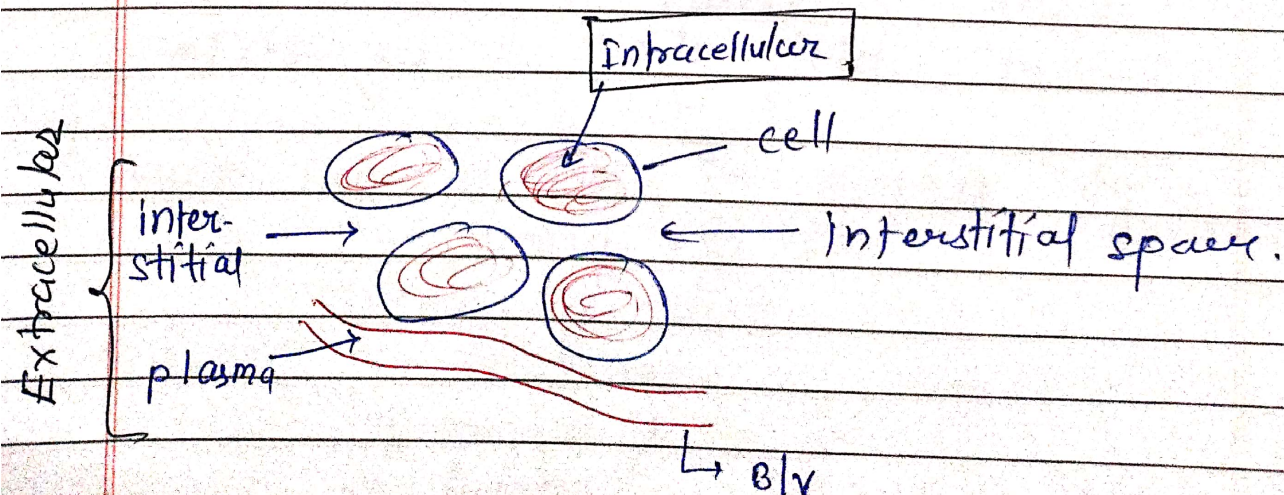 Intracellular
cell
Extracellular
inter-
stitial
Interstitial space.
plasma
B/V